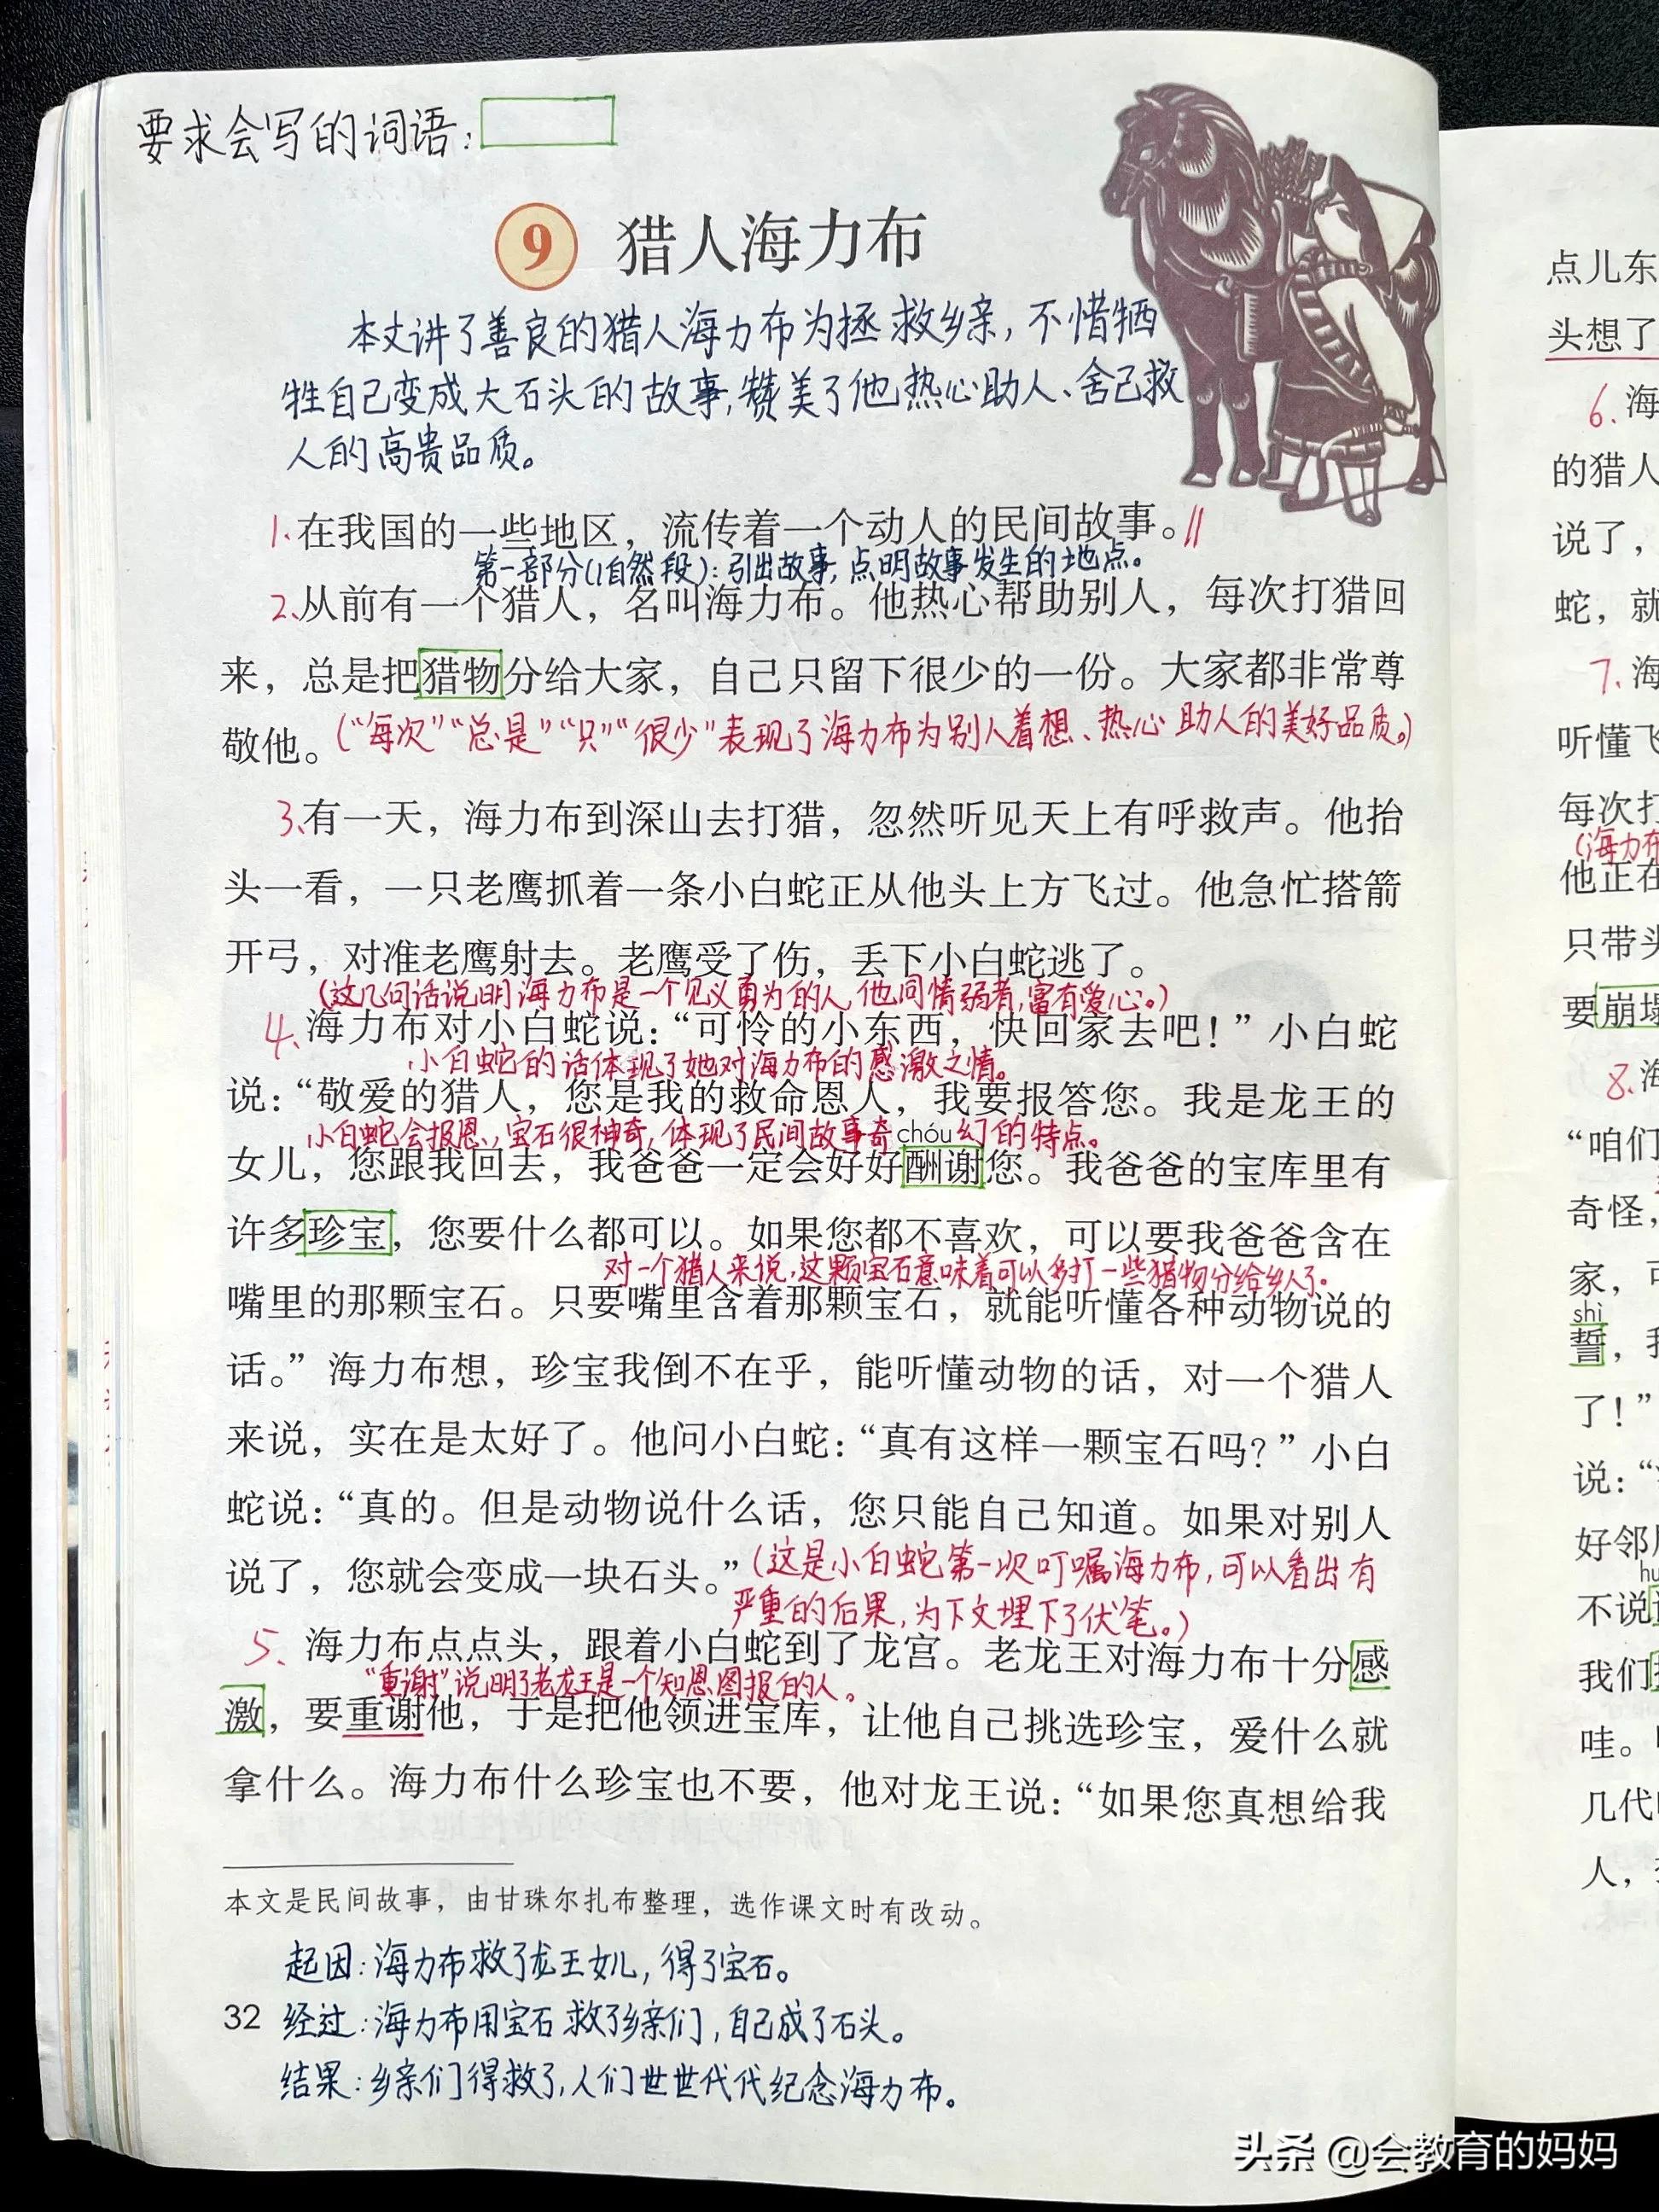 要求会写的词语：
9 猎人海力布
本文讲了善良的猎人海力布为拯救乡亲，不惜牺
牲自己变成大石头的故事，赞美了他热心助人、舍己救
人的高贵品质。
1.在我国的一些地区，流传着一个动人的民间故事。
第一部分（1自然段）：引出故事，点明故事发生的地点。
2.从前有一个猎人，名叫海力布。他热心帮助别人，每次打猎回
来，总是把猎物分给大家，自己只留下很少的一份。大家都非常尊
敬他。（“每次”“总是”“只”“很少”表现了海力布为别人着想、热心助人的美好品质。）
3、有一天，海力布到深山去打猎，忽然听见天上有呼救声。他抬
头一看，一只老鹰抓着一条小白蛇正从他头上方飞过。他急忙搭箭
开弓，对准老鹰射去。老鹰受了伤，丢下小白蛇逃了。
（这几句话说明海力布是一个见义勇为的人，他同情弱者，富有爱心。）
4、海力布对小白蛇说：“可怜的小东西，快回家去吧！”小白蛇
小白蛇的话体现了她对海力布的感激之情。
说：“敬爱的猎人，您是我的救命恩人，我要报答您。我是龙王的
小白蛇会报恩、宝石很神奇，体现了民间故事奇幻的特点。
chóu
女儿，您跟我回去，我爸爸一定会好好酬谢您。我爸爸的宝库里有
许多珍宝，您要什么都可以。如果您都不喜欢，可以要我爸爸含在
对一个猎人来说，这颗宝石意味着可以多打一些猎物分给乡人了。
嘴里的那颗宝石。只要嘴里含着那颗宝石，就能听懂各种动物说的
话。”海力布想，珍宝我倒不在乎，能听懂动物的话，对一个猎人
来说，实在是太好了。他问小白蛇：“真有这样一颗宝石吗？”小白
蛇说：“真的。但是动物说什么话，您只能自己知道。如果对别人
说了，您就会变成一块石头。”（这是小白蛇第一次叮嘱海力布，可以看出有
严重的后果，为下文埋下了伏笔。）
5、海力布点点头，跟着小白蛇到了龙宫。老龙王对海力布十分感
“重谢”说明了老龙王是一个知恩图报的人。
激，要重谢他，于是把他领进宝库，让他自己挑选珍宝，爱什么就
拿什么。海力布什么珍宝也不要，他对龙王说：“如果您真想给我
本文是民间故事，由甘珠尔扎布整理，选作课文时有改动。
起因：海力布救了龙王女儿，得了宝石。
32 经过：海力布用宝石救了乡亲们，自己成了石头。
结果：乡亲们得救了，人们世世代代纪念海力布。
点儿东
头想了
6、海
的猎人
说了，
蛇，就
7、海
听懂飞
每次打
（海力布
他正在
只带头
要崩塌
8、海
“咱们
奇怪，
家，可
shì
誓，我
了！”
说：“
好邻居
hu
不说
我们
哇。
几代
人，
头条 @会教育的妈妈